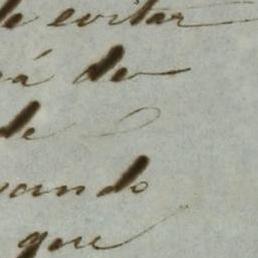 de evitar
rá de
de
uando
que